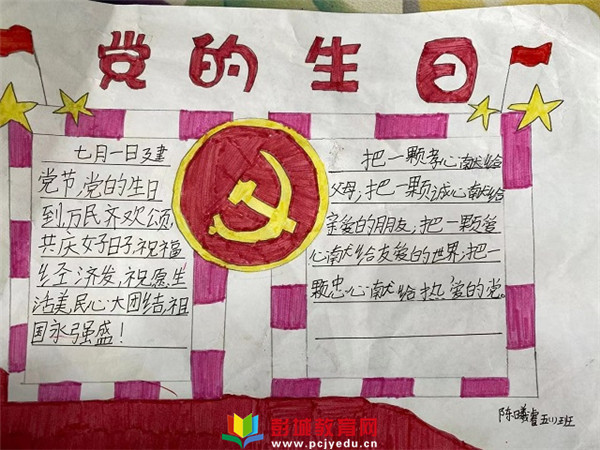 党的生日
七月一日建
党节,党的生日
到,万民齐欢颂,
共庆好日子,祝福
经济发,祝愿生
活美,民心大团结,祖
国永强盛!
把一颗孝心献给
父母,把一颗诚心献给
亲爱的朋友,把一颗爱
心献给友爱的世界,把一
颗忠心献给热爱的党。
陈曦睿 五(1)班
彭城教育网
www.pcjyedu.cn